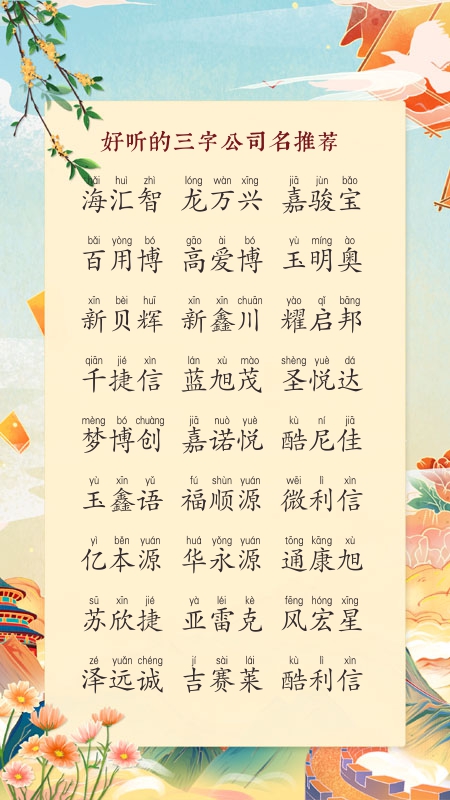 好听的三字公司名推荐
hǎi huì zhì lóng wàn xīng jiā jùn bǎo
海汇智 龙万兴 嘉骏宝
bǎi yòng bó gāo ài bó yù míng ào
百用博 高爱博 玉明奥
xīn bèi huī xīn xīn chuān yào qǐ bāng
新贝辉 新鑫川 耀启邦
qiān jié xìn lán xù mào shèng yuè dá
千捷信 蓝旭茂 圣悦达
mèng bó chuàng jiā nuò yuè kù ní jiā
梦博创 嘉诺悦 酷尼佳
yù xīn yǔ fú shùn yuán wēi lì xìn
玉鑫语 福顺源 微利信
yì běn yuán huá yǒng yuán tōng kāng xù
亿本源 华永源 通康旭
sū xīn jié yà léi kè fēng hóng xīng
苏欣捷 亚雷克 风宏星
zé yuǎn chéng jí sài lái kù lì xìn
泽远诚 吉赛莱 酷利信